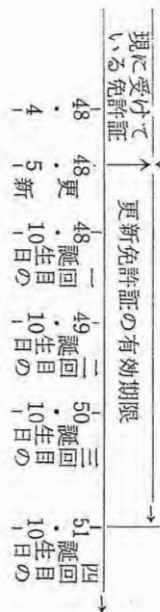 現に受けて
いる免許証
更新免許証の有効期限
48・4
48・5
更新
48・10
一回目の
誕生日
49・10
二回目の
誕生日
50・10
三回目の
誕生日
51・10
四回目の
誕生日